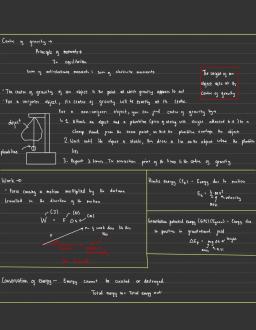 Centre of gravity →
Principle of moments
In equilibrium
Sum of anticlockwise moments = Sum of clockwise moments
The weight of an
object acts at its
Centre of gravity
· The centre of gravity of an object is the point at which gravity appears to act
· For a uniform object, its centre of gravity will be exactly at its centre.
For a non-uniform object, you can find centre of gravity by:
object
plumbline
1. Attach an object and a plumbline
clamp stand, from the same point, so that the plumbline overlaps the object
2. Wait until the object is stable, then draw a line on the object where the plumbline
lies
3. Repeat 2 times. The intersection point of the lines is the centre of gravity
Work →
· Force causing a motion multiplied by the distance
travelled in the direction of the motion
(J) (N) (m)
W = F
Kinetic energy (Ek) - Energy due to motion
Ek = ½ mv²
velocity
mass
Gravitational potential energy (GPE) - Energy due
to position in gravitational field
height
mass
Conservation of Energy - Energy cannot be created or destroyed.
Total energy in = Total energy out